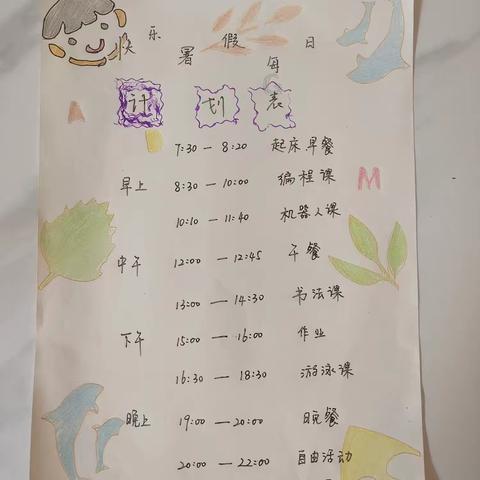 快乐暑假每日
计划表
7:30 — 8:20 起床早餐
早上 8:30 — 10:00 编程课
10:10 — 11:40 机器人课
中午 12:00 — 12:45 午餐
13:00 — 14:30 书法课
下午 15:00 — 16:00 作业
16:30 — 18:30 游泳课
晚上 19:00 — 20:00 晚餐
20:00 — 22:00 自由活动
A
M